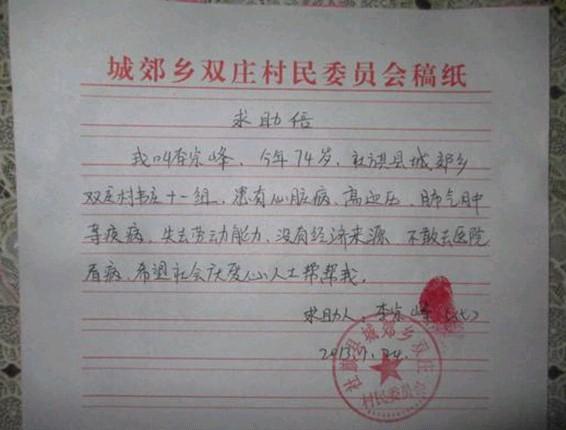 城郊乡双庄村民委员会稿纸
求助信
我叫李宗峰，今年74岁，社旗县城郊乡
双庄村韦庄十一组，患有心脏病、高血压、肺气肿
等疾病，失去劳动能力，没有经济来源，不敢去医院
看病，希望社会庆爱心人士帮帮我。
求助人：李宗峰（代）
2013.7.24.
社旗县城郊乡双庄
村民委员会